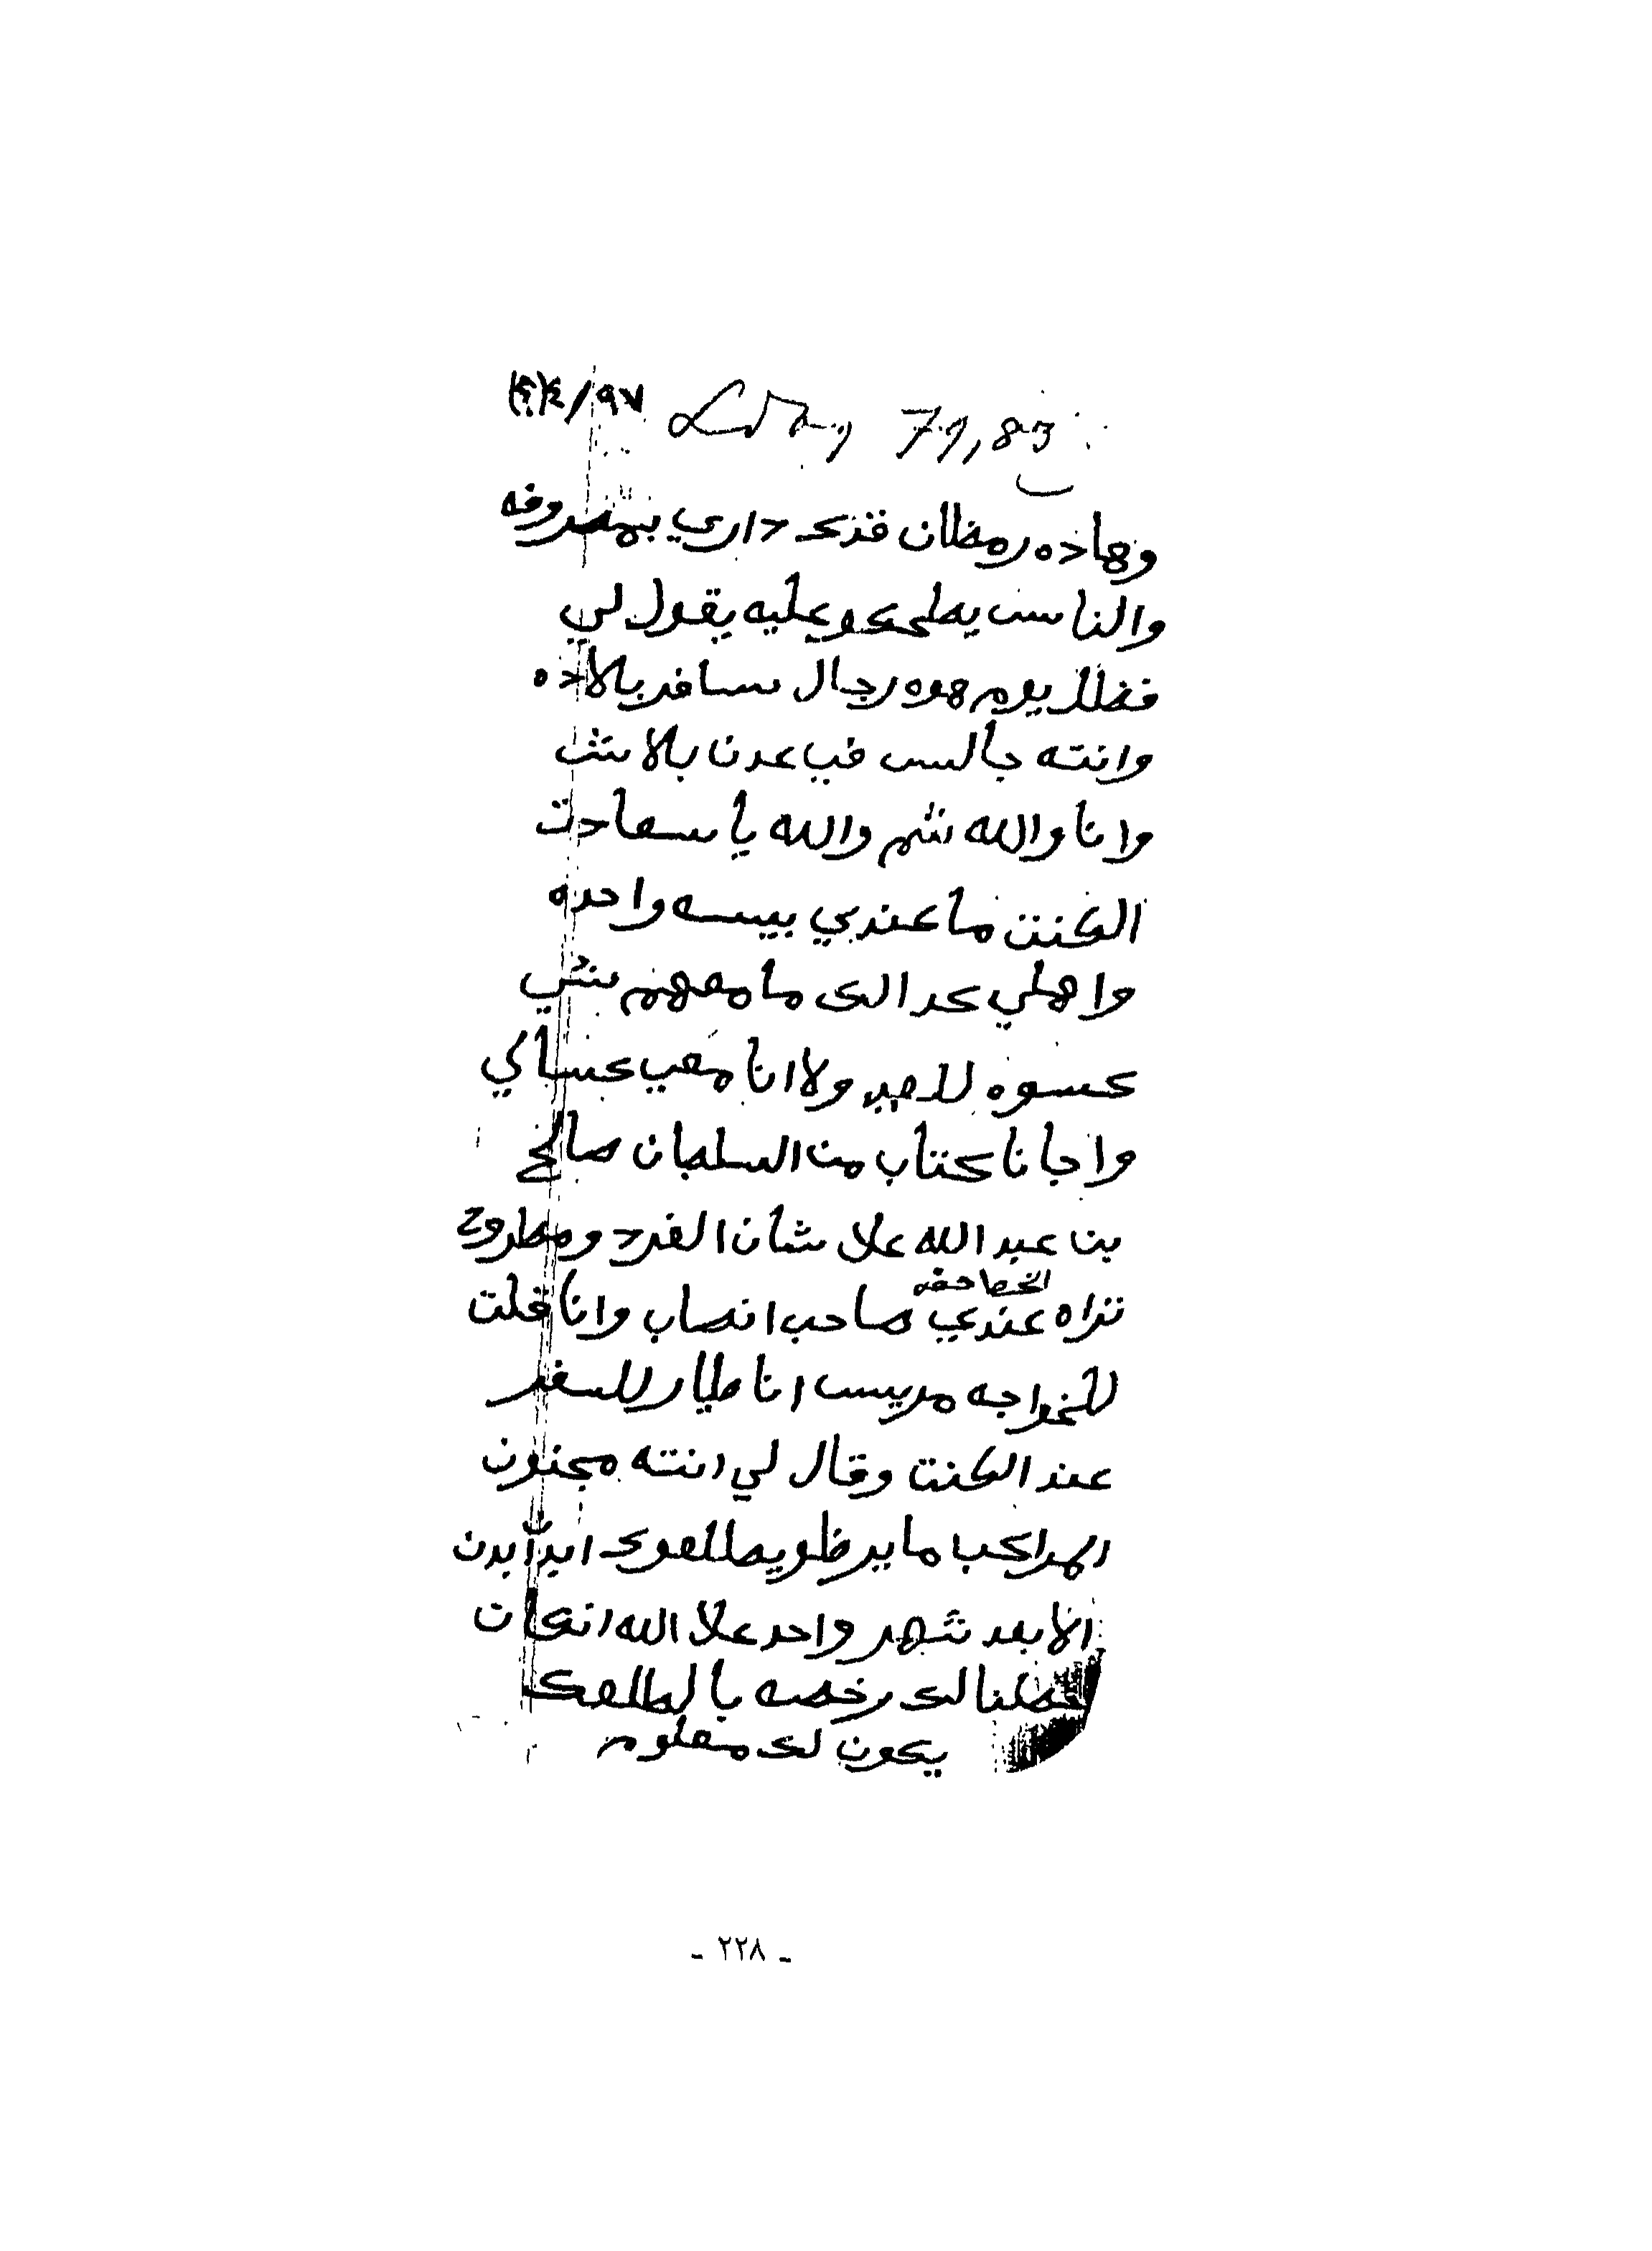 71,83
وهاذه رمظان قنك داري بمصروفه
والناس يطحكو عليه يقول لي
فظلك يوم هوه رجال سافر بلاده
وانته جالس في عدن بلاش
وانا والله ثم والله يا سعادت
الكنت ما عندي بيسه واحده
واهلي كذالك ما معهم شي
كسوه للعيد ولا انا معي كساكي
واجانا كتاب من السلطان صالح
بن عبد الله علا شان الفرد ومطروح
تراه عندي الخط حقه صاحب انصاب وانا قلت
للخواجه مريس انا طيار للسفر
عند الكنت وقال لي انته مجنون
المراكب ما يرظو يطلعوك ابد ابدن
الا بعد شهر واحد علا الله انكان
فظلنا لك رخصه بالطلعك
يكون لك معلوم
- ٢٢٨ -